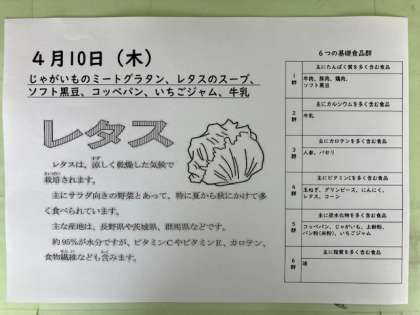 4月10日（木）
じゃがいものミートグラタン、レタスのスープ、
ソフト黒豆、コッペパン、いちごジャム、牛乳
レタス
レタスは、涼しく乾燥した気候で
栽培されます。
主にサラダ向きの野菜とあって、特に夏から秋にかけて多
く食べられています。
主な産地は、長野県や茨城県、群馬県などです。
約95%が水分ですが、ビタミンCやビタミンE、カロテン、
食物繊維なども含みます。
6つの基礎食品群
1群
主にたんぱく質を多く含む食品
牛肉、豚肉、鶏肉、
ソフト黒豆
2群
主にカルシウムを多く含む食品
牛乳
3群
主にカロテンを多く含む食品
人参、パセリ
4群
主にビタミンCを多く含む食品
玉ねぎ、グリンピース、にんにく、
レタス、コーン
5群
主に炭水化物を多く含む食品
コッペパン、じゃがいも、上新粉、
パン粉(米粉)、いちごジャム
6群
主に脂質を多く含む食品
油